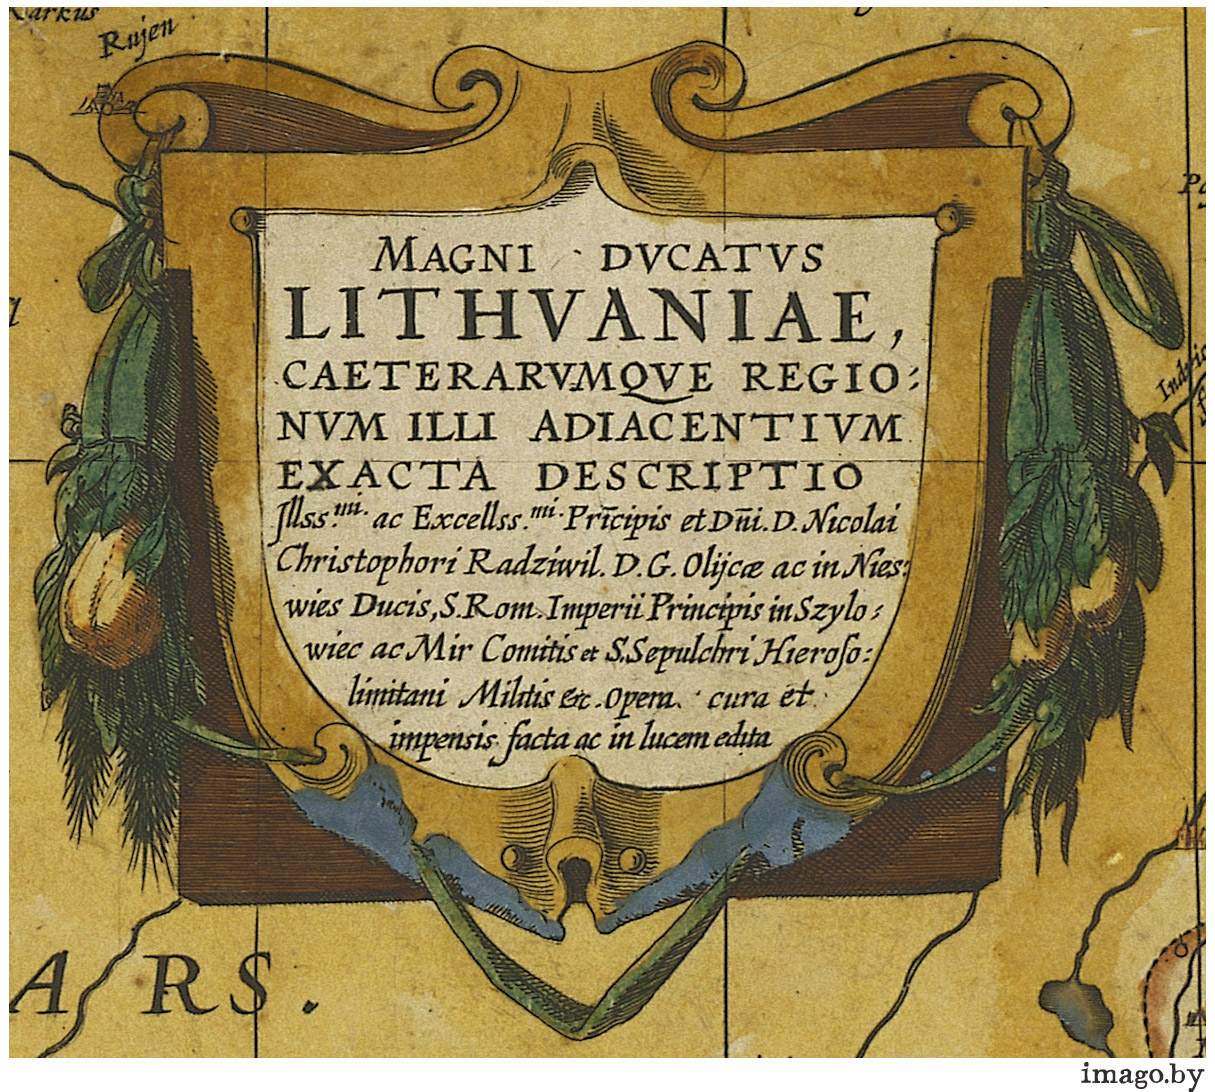 Rujen
MAGNI DVCATVS
LITHVANIAE,
CAETERARVMQVE REGIO:
NVM ILLI ADIACENTIVM
EXACTA DESCRIPTIO
Jllss.mi. ac Excellss.mi. Prīcipis et Dn̄i. D. Nicolai
Christophori Radziwil. D. G. Olijcæ ac in Nies:
wies Ducis, S. Rom. Imperii Principis in Szylo:
wiec ac Mir Comitis et S. Sepulchri Hieroſo:
limitani Militis &c. Opera. cura et
impensis facta ac in lucem edita
ARS.
imago.by